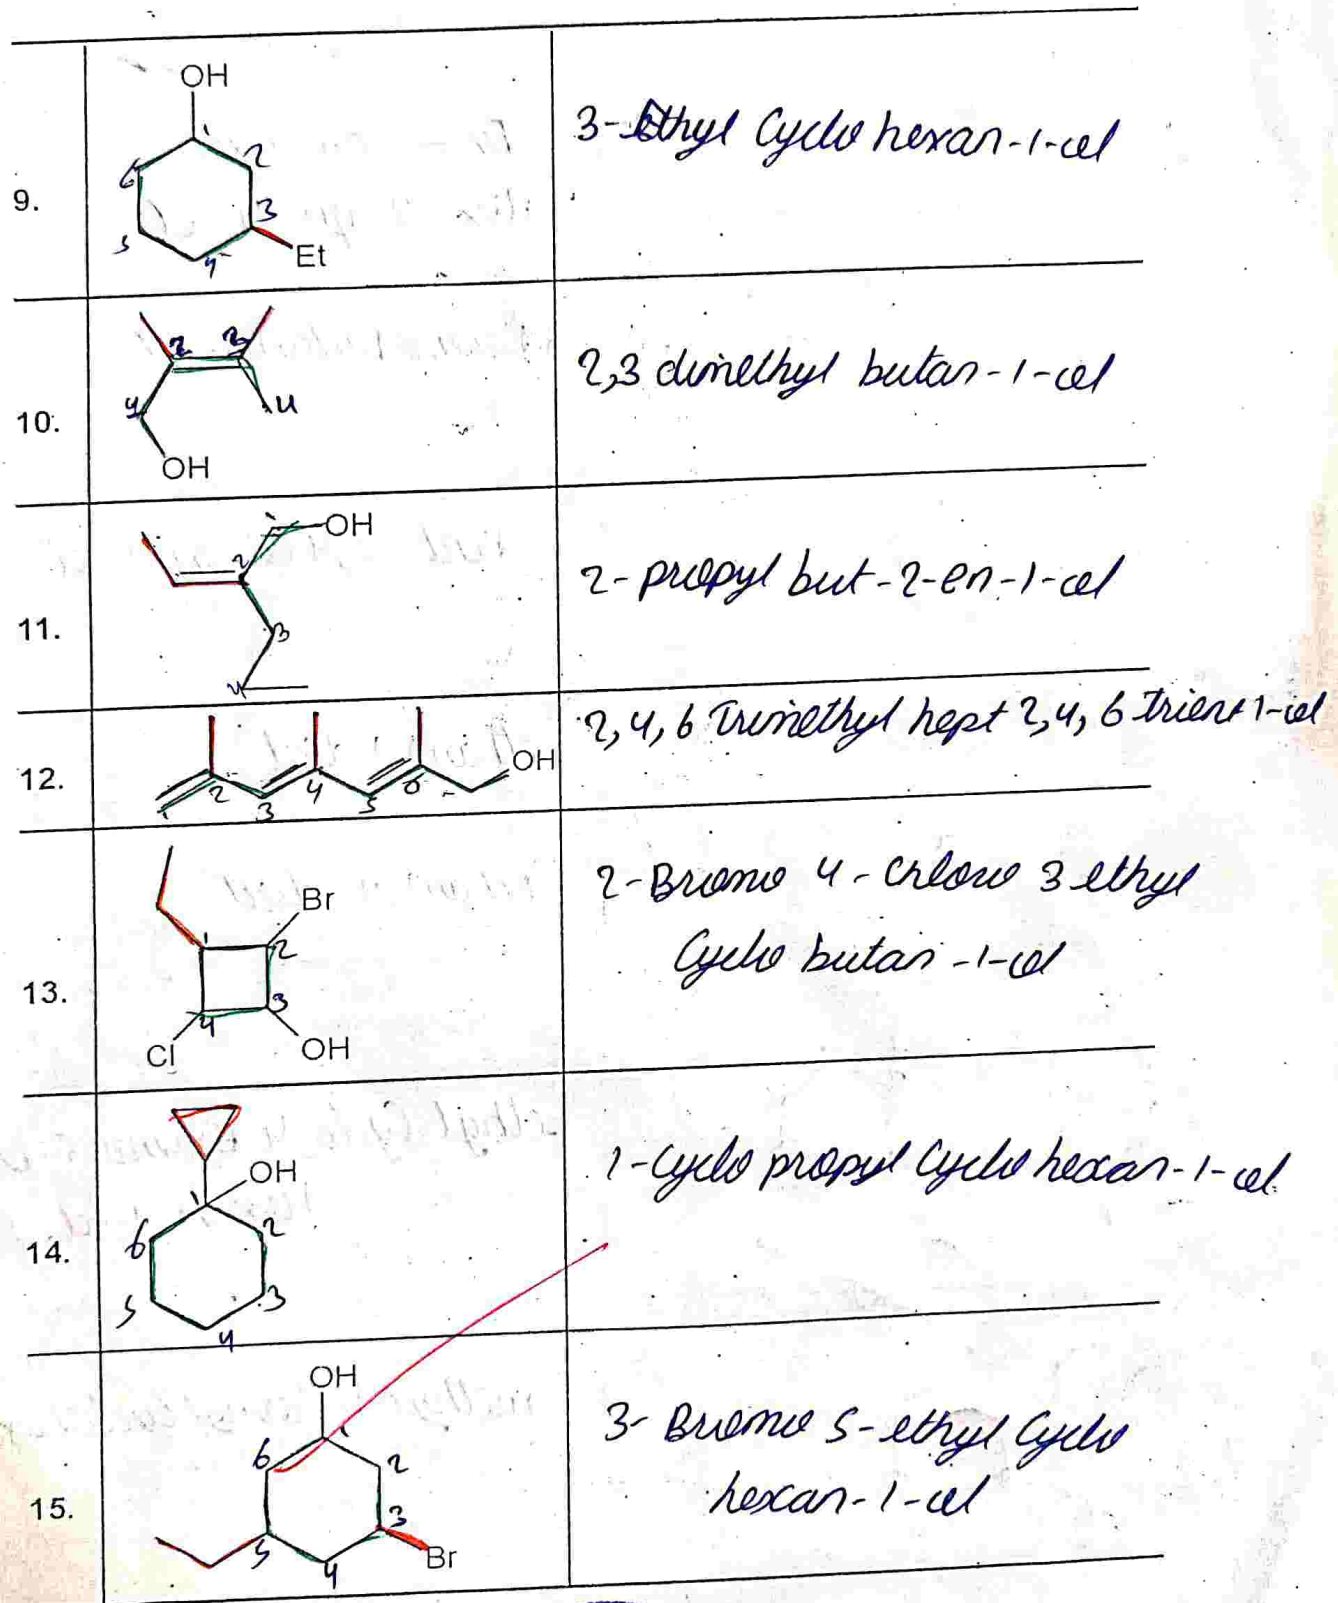 9.
OH
1
2
3
4
5
6
Et
3-Ethyl Cyclo hexan-1-ol
10.
2
2
4
4
OH
2,3 dimethyl butan-1-ol
11.
1
OH
2
3
4
2-propyl but-2-en-1-ol
12.
OH
1
2
3
4
5
6
2,4,6 Trimethyl hept 2,4,6 trien 1-ol
13.
Br
1
2
3
4
Cl
OH
2-Bromo 4-chloro 3 ethyl
Cyclo butan-1-ol
14.
OH
1
6
2
5
3
4
1-Cyclo propyl Cyclo hexan-1-ol
15.
OH
1
6
2
3
5
4
Br
3-Bromo 5-ethyl Cyclo
hexan-1-ol